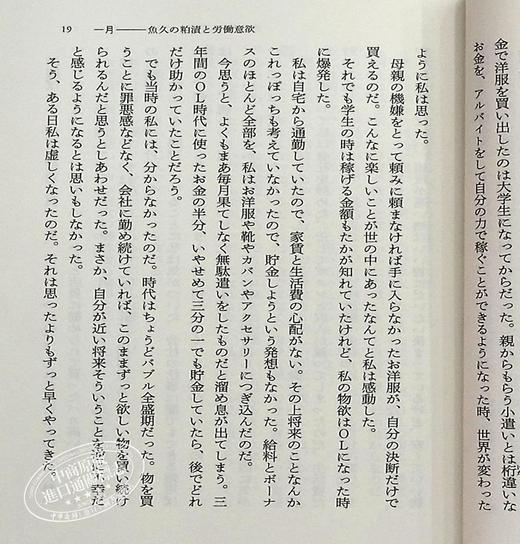 金で洋服を買い出したのは大学生になってからだった。親からもらう小遣いとは桁違いな
お金を、アルバイトをして自分の力で稼ぐことができるようになった時、世界が変わった
19　一月――魚久の粕漬と労働意欲
ように私は思った。
母親の機嫌をとって頼みに頼まなければ手に入らなかったお洋服が、自分の決断だけで
買えるのだ。こんなに楽しいことが世の中にあったなんてと私は感動した。
それでも学生の時は稼げる金額もたかが知れていたけれど、私の物欲はOLになった時
に爆発した。
私は自宅から通勤していたので、家賃と生活費の心配がない。その上将来のことなんか
これっぽっちも考えていなかったので、貯金しようという発想もなかった。給料とボーナ
スのほとんど全部を、私はお洋服や靴やカバンやアクセサリーにつぎ込んだのだ。
今思うと、よくもまあ毎月果てしなく無駄遣いをしたものだと溜め息が出てしまう。三
年間のOL時代に使ったお金の半分、いやせめて三分の一でも貯金していたら、後でどれ
だけ助かっていたことだろう。
でも当時の私には、分からなかったのだ。時代はちょうどバブル全盛期だった。物を買
うことに罪悪感などなく、会社に勤め続けていれば、このままずっと欲しい物を買い続け
られるんだと思うとしあわせだった。まさか、自分が近い将来そういうことを幸だ
と感じるようになるとは思いもしなかった。
そう、ある日私は虚しくなったのだ。それは思ったよりもずっと早くやってきた。